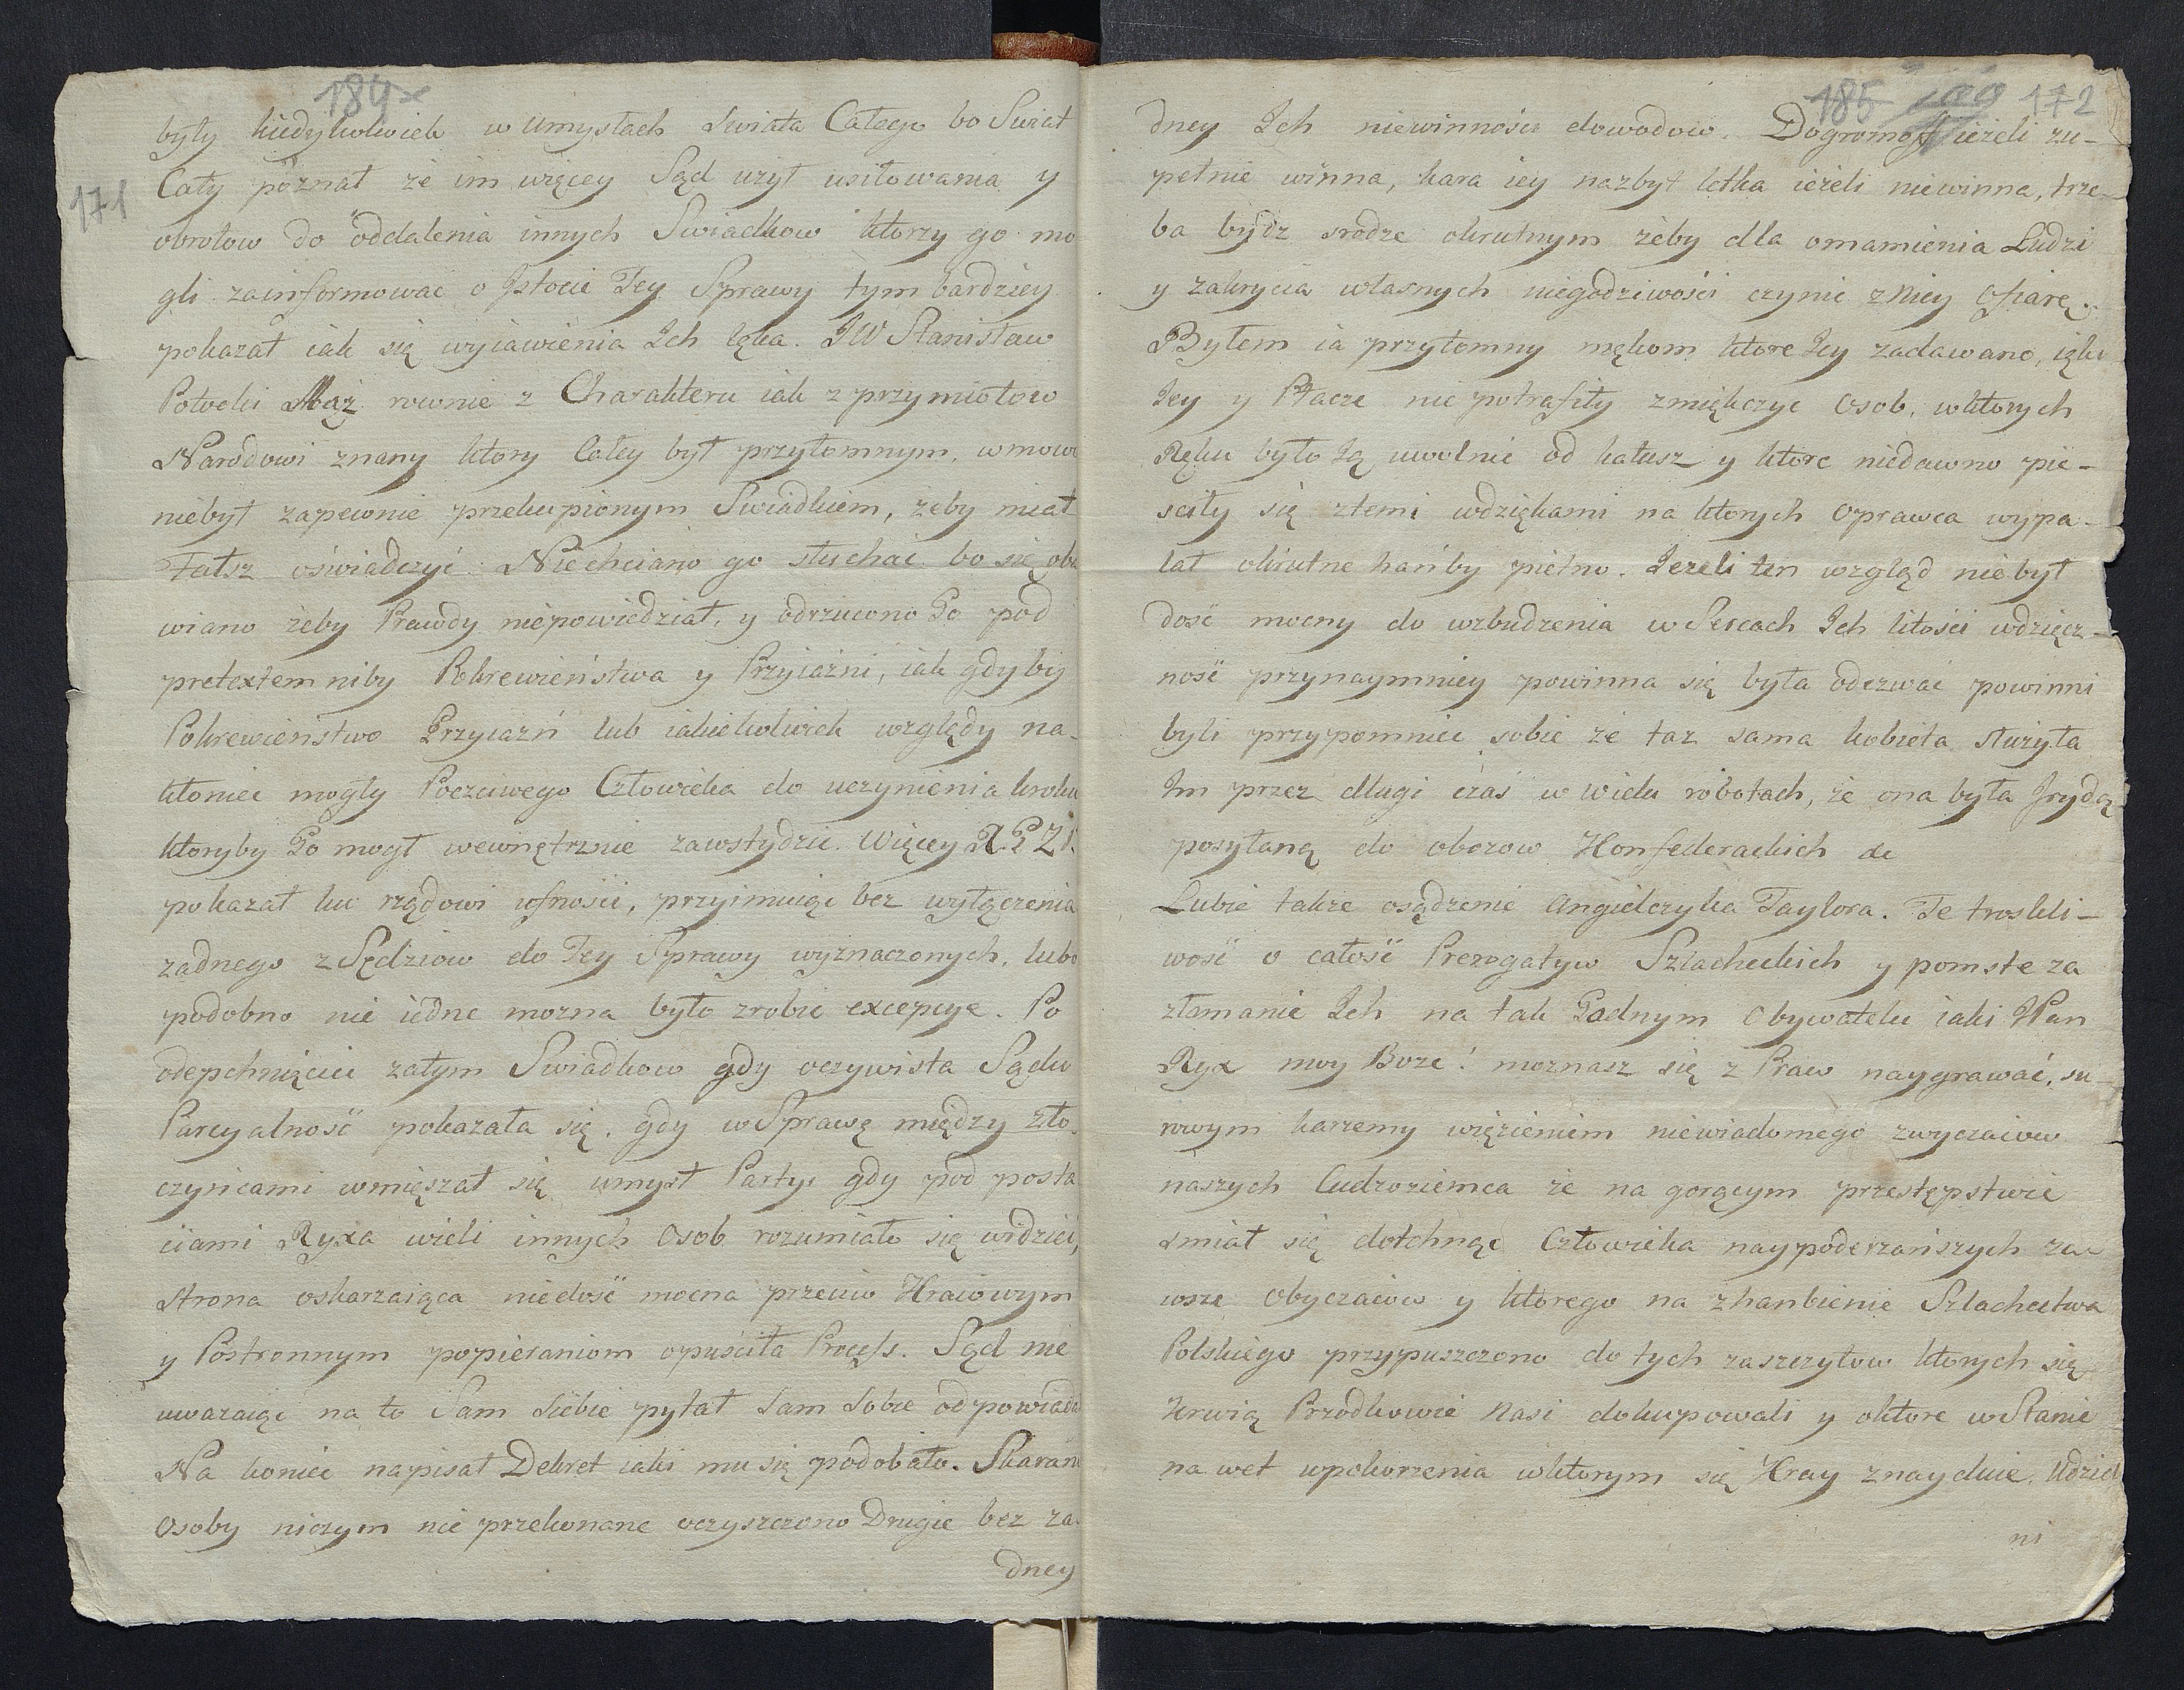 184
171
były kiedykolwiek w umysłach Swiata Całego bo Swiat
Cały poznał ze im więcey Sąd użył usiłowania y
obrotow do oddalenia innych Swiadkow ktorzy go mo
gli zainformowac o Jstocie Tey Sprawy tym bardziey
pokazał iak się wyiawienia Ich lęka. JW Stanisław
Potocki Mąż rownie z Charakteru iak z przymiotow
Narodowi znany ktory Całey był przytomnym, wmow
niebył zapewnie przekupionym Swiadkiem, żeby miał
Fałsz oświadczyć. Niechciano go słuchac bo się oba
wiano żeby Prawdy niepowiedział, y odrzucono Go pod
pretextem niby Pokrewieństwa y Przyiaźni, iak gdyby
Pokrewieństwo Przyiazń lub iakiekolwiek względy na-
kłonić mogły Poczciwego Człowieka do uczynienia kroku
ktoryby Go mogł wewnętrznie zawstydzic. Więcey
pokazał ku rządowi ufności, przyimuiąc bez wyłączenia
żadnego z Sędziow do Tey Sprawy wyznaczonych, lubo
podobno nie iedne mozna było zrobic excepcye. Po
odepchnięciu zatym Swiadkow gdy oczywista Sądu
Parcyalność pokazała się, gdy w Sprawę między zło-
czyńcami wmięszał się umysł Partyi gdy pod posta
ciami Ryxa wieli innych Osob rozumiało się widzieć,
strona oskarzaiąca niedość mocna przeciw Kraiowym
y Postronnym popieraniom opuściła Process. Sąd nie
uwazaiąc na to Sam siebie pytał Sam Sobie odpowiada
Na koniec napisał Dekret iaki mu się podobało. Skarano
Osoby niczym nie przekonane oczyszczono Drugie bez ża-
dney
185 172
dney Ich niewinności dowodow. Dogromoff ieżeli zu-
pełnie winna, kara iey nazbyt letka ieżeli niewinna, trze-
ba bydz srodze okrutnym żeby dla omamienia Ludzi
y zakrycia własnych niegodziwości czynic z Niey Ofiarę.
Byłem ia przytomny mękom ktore Jey zadawano, ięki
Jey y Płacze nie potrafiły zmiękczyc Osob, wktorych
Ręku było Ją uwolnic od katusz y ktore niedawno pie-
sciły się złemi wdziękami na ktorych Oprawca wypa-
lał okrutne hańby piętno. Jezeli ten wzgląd niebył
dość mocny do wzbudzenia w Sercach Ich litości wdzięcz-
ność przynaymniey powinna się była odezwać powinni
byli przypomniec sobie ze taz sama kobieta służyła
Im przez długi czas w wielu robotach, że ona była Jrydą
posyłaną do obozow Konfederackich de
Lubie także osądzenie Angielczyka Taylora. Te troskli-
wość o całość Prerogatyw Szlacheckich y pomste za
złamanie Ich na tak Godnym Obywatelu iaki JPan
Ryx moy Boze! moznasz się z Praw naygrawać, su-
rowym karzemy więzieniem niewiadomego zwyczaiow
naszych Cudzoziemca że na gorącym przestępstwie
smiał się dotchnąc Człowieka naypoderzańszych za-
wsze Obyczaiow y ktorego na zhanbienie Szlachectwa
Polskiego przypuszczono do tych zaszczytow ktorych się
Krwią Przodkowie Nasi dokupowali y oktore w Stanie
na wet upokorzenia wktorym się Kray znayduie, Udziel
ni